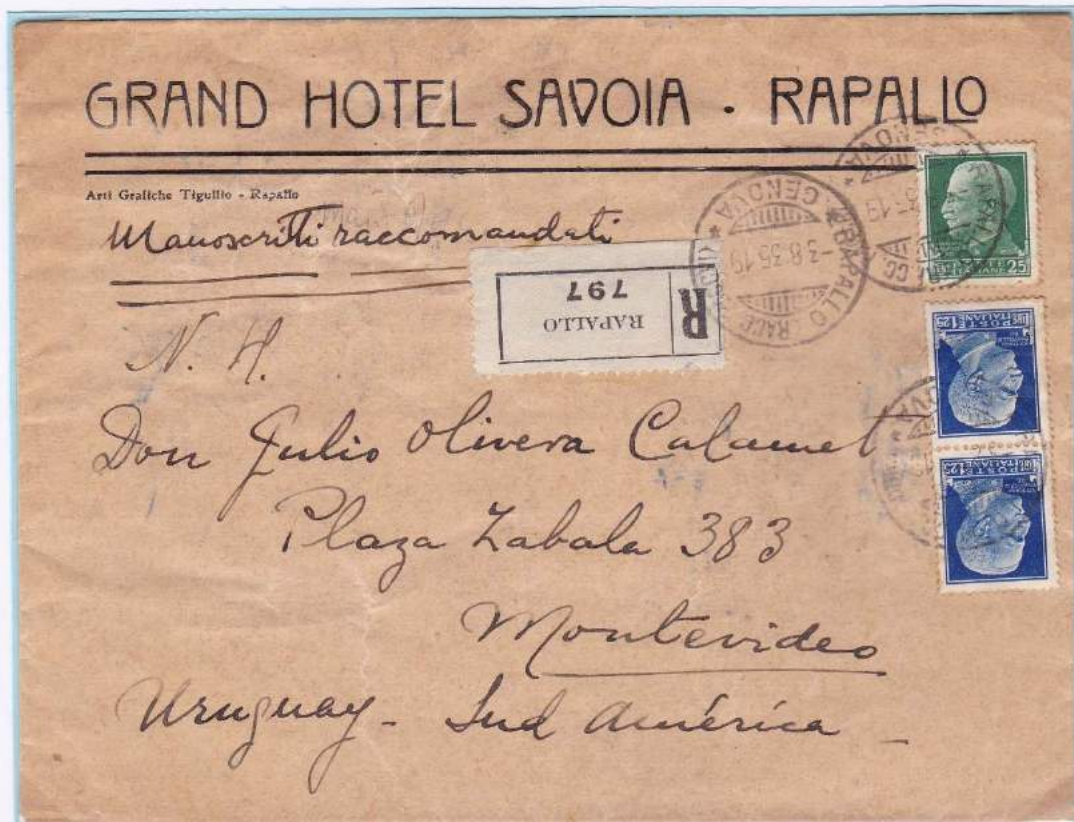 GRAND HOTEL SAVOIA · RAPALLO
Arti Grafiche Tigullio - Rapallo
Manoscritti raccomandati
R
RAPALLO
797
RAPALLO
GENOVA
-3.8.35.19
25
POSTE ITALIANE
LIRE 1,25
POSTE ITALIANE
LIRE 1,25
N. H.
Don Julio Olivera Calamet
Plaza Zabala 383
Montevideo
Uruguay - Sud América -